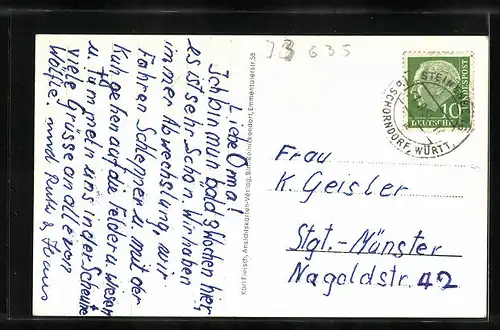 Liebe Oma!
Ich bin nun bald 3 Wochen hier
es ist sehr schön. Wir haben
immer Abwechslung, wir
fahren Schlepper u. mit der
Kuh gehen auf die Felder u. Wiesen
u. tummeln uns in der Scheune
Viele Grüsse an alle von
und
Karl Fleisch, Ansichtskarten-Verlag, Emmentalerstr. 58
635
DEUTSCHE BUNDESPOST
10
SCHORNDORF, WÜRTT.
Frau
K. Geisler
Stgt.-Münster
Nagoldstr. 42